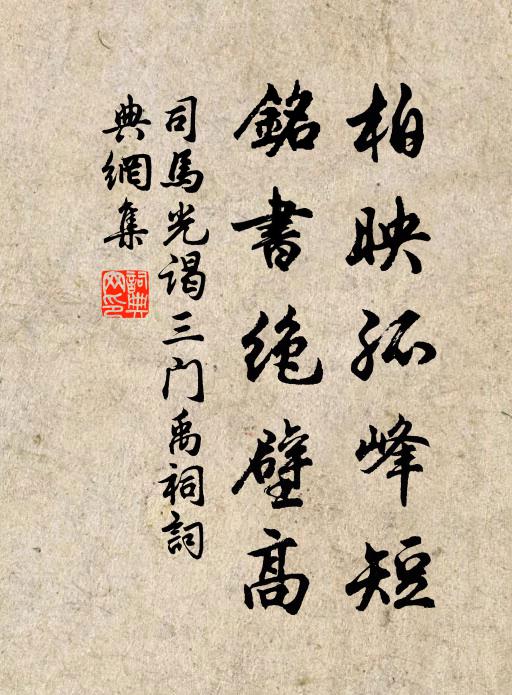 柏映孤峰短
銘書絶壁高
司馬光謁三门禹祠詞
典網集
詞典網印